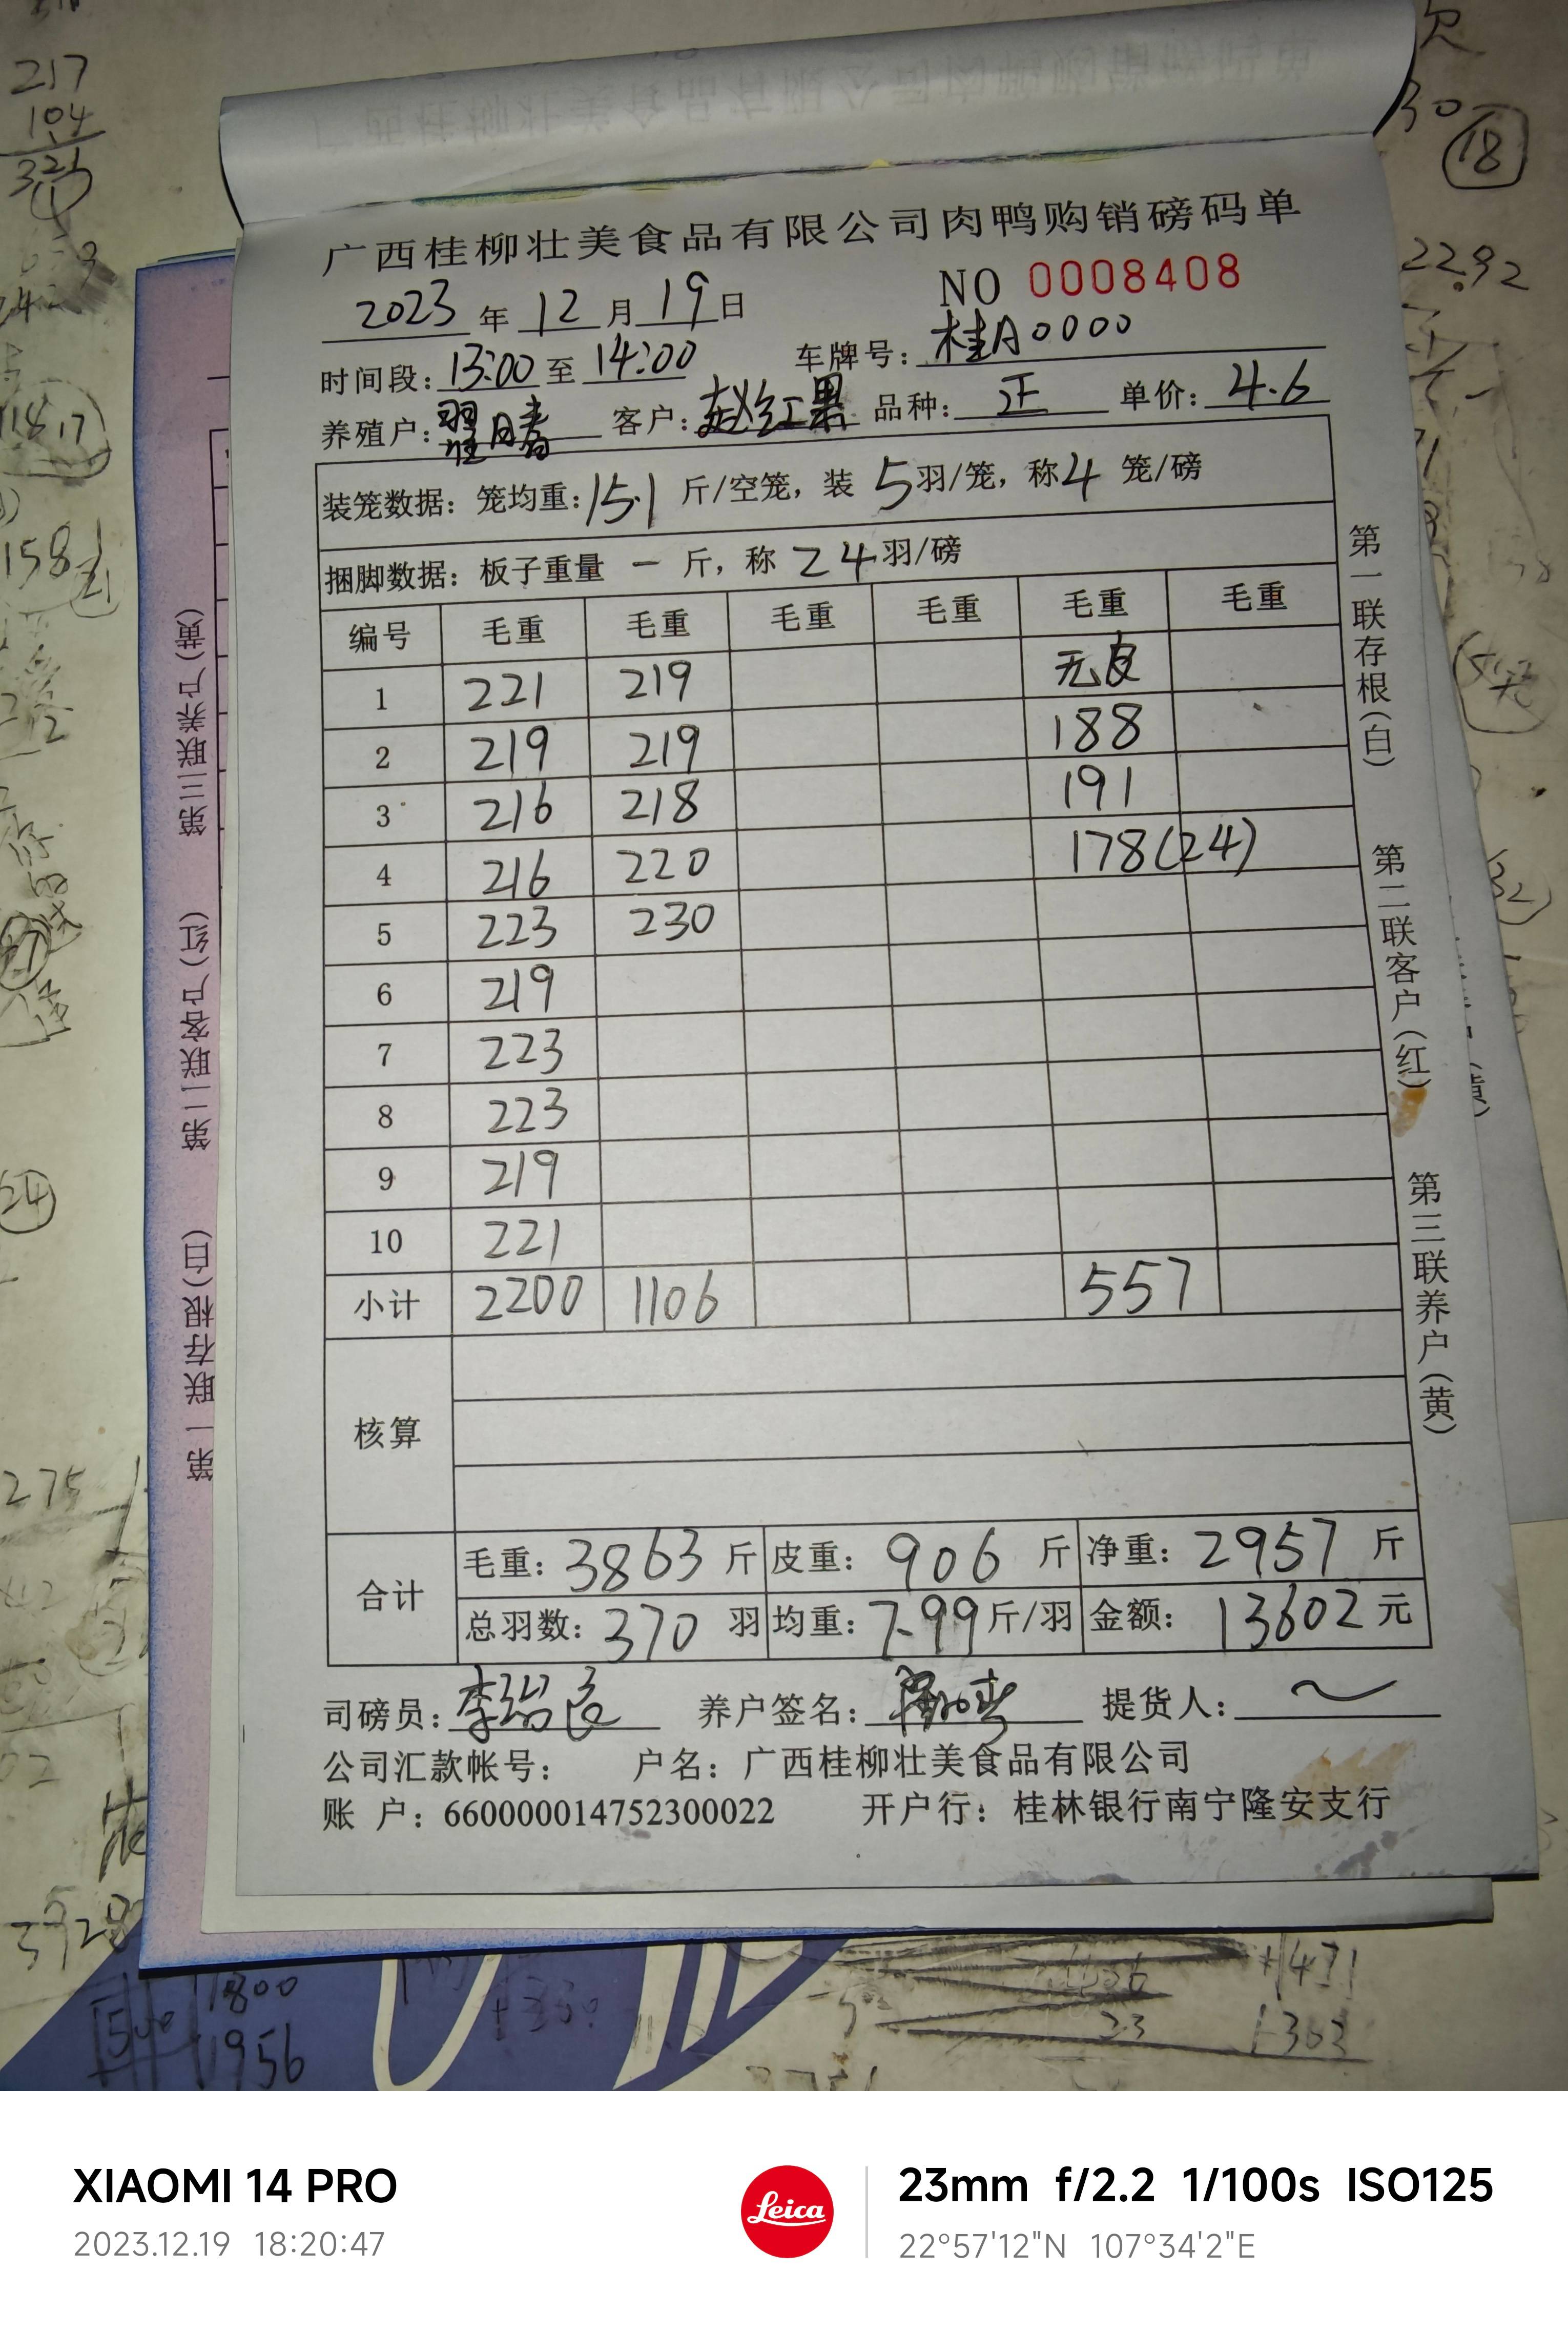 广西桂柳壮美食品有限公司肉鸭购销磅码单
2023年12月19日 NO 0008408
时间段：13:00至14:00 车牌号：桂A0000
养殖户： 客户：赵红果 品种：正 单价：4.6
装笼数据：笼均重：15.1斤/空笼，装5羽/笼，称4笼/磅
捆脚数据：板子重量 一 斤，称24羽/磅
编号 毛重 毛重 毛重 毛重 毛重 毛重
1 221 219 无皮
2 219 219 188
3 216 218 191
4 216 220 178(24)
5 223 230
6 219
7 223
8 223
9 219
10 221
小计 2200 1106 557
核算
合计
毛重：3863斤 皮重：906斤 净重：2957斤
总羽数：370羽 均重：7.99斤/羽 金额：13602元
司磅员： 养户签名： 提货人：
公司汇款帐号： 户名：广西桂柳壮美食品有限公司
账 户：660000014752300022 开户行：桂林银行南宁隆安支行
第一联存根(白) 第二联客户(红) 第三联养户(黄)
第一联存根(白) 第二联客户(红) 第三联养户(黄)
217
104
321
18
22.92
158
24
275
1800
1956
XIAOMI 14 PRO
2023.12.19 18:20:47
Leica
23mm f/2.2 1/100s ISO125
22°57'12"N 107°34'2"E